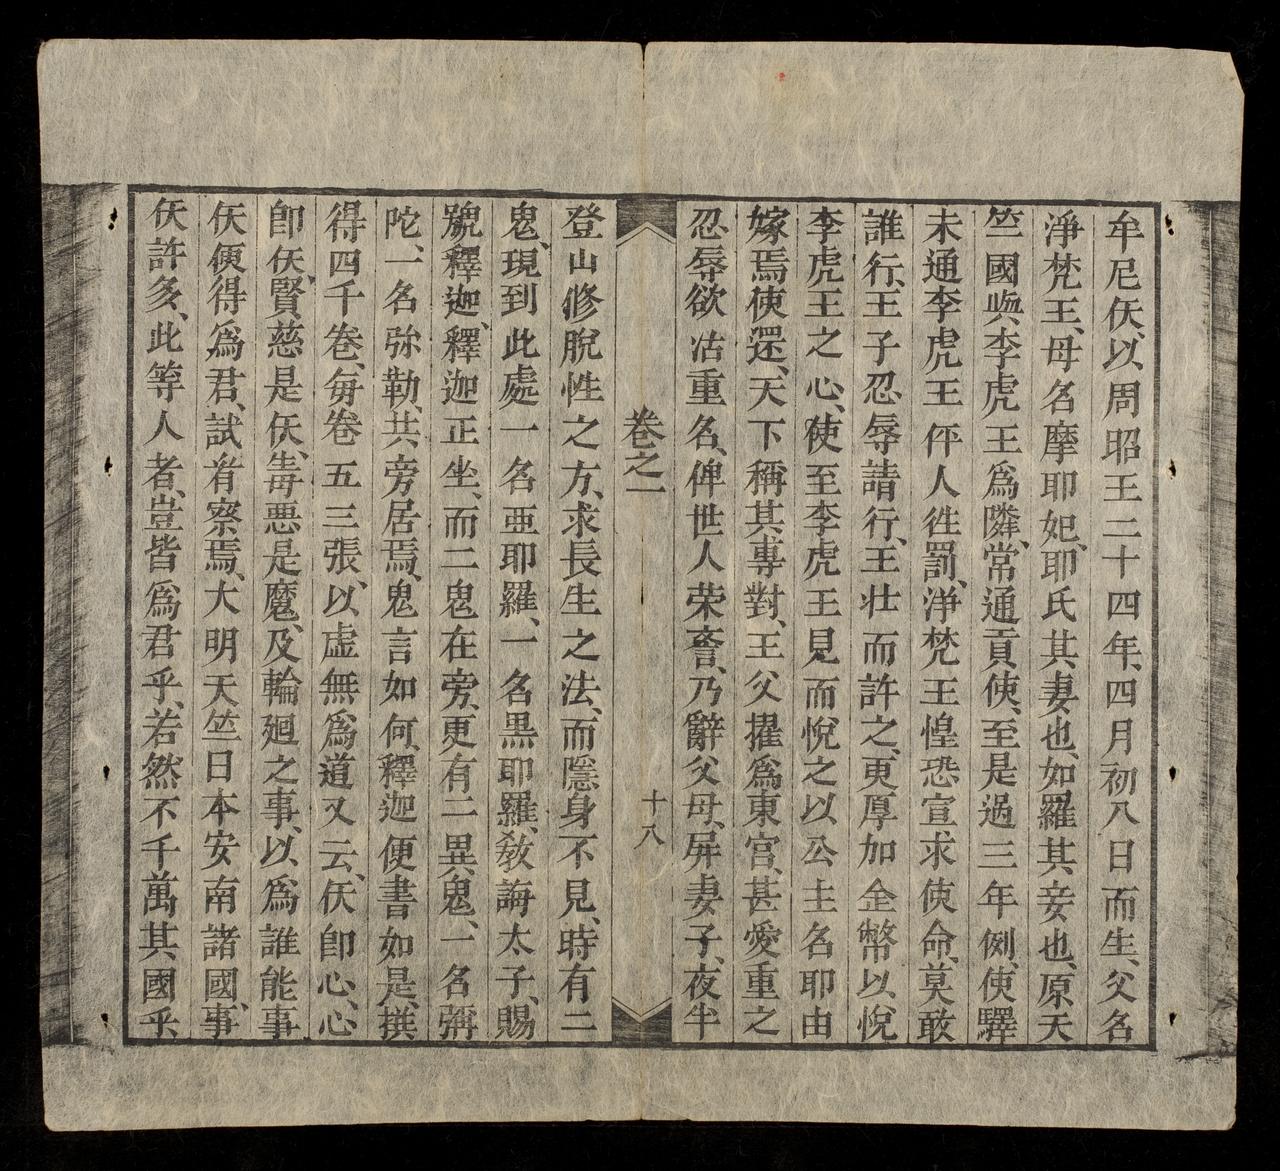 牟尼仸、以周昭王二十四年、四月初八日而生、父名
淨梵王、母名摩耶妃、耶氏其妻也、如羅其妾也、原天
竺國與李虎王爲隣、常通貢使、至是過三年例、使驛
未通李虎王伻人徃罰、淨梵王惶恐宣求使命、莫敢
誰行、王子忍辱請行、王壮而許之、更厚加金幣以悅
李虎王之心、使至李虎王見而悅之以公主名耶由
嫁焉使還、天下稱其專對、王父擢爲東宮、甚愛重之
忍辱欲沽重名、俾世人荣誉、乃辭父母、屏妻子、夜半
卷之一
十八
登山修脫性之方、求長生之法、而隱身不見、時有二
鬼、現到此處一名亜耶羅、一名黒耶羅、敎誨太子、賜
號釋迦、釋迦正坐、而二鬼在旁、更有二異鬼、一名彌
陀、一名弥勒、共旁居焉、鬼言如何、釋迦便書如是、撰
得四千巻、毎巻五三張、以虛無爲道又云、仸卽心、心
卽仸、賢慈是仸、毒惡是魔、及輪廻之事、以爲誰能事
仸便得爲君、試省察焉、大明天竺日本安南諸國、事
仸許多、此等人者、豈皆爲君乎、若然不千萬其國乎